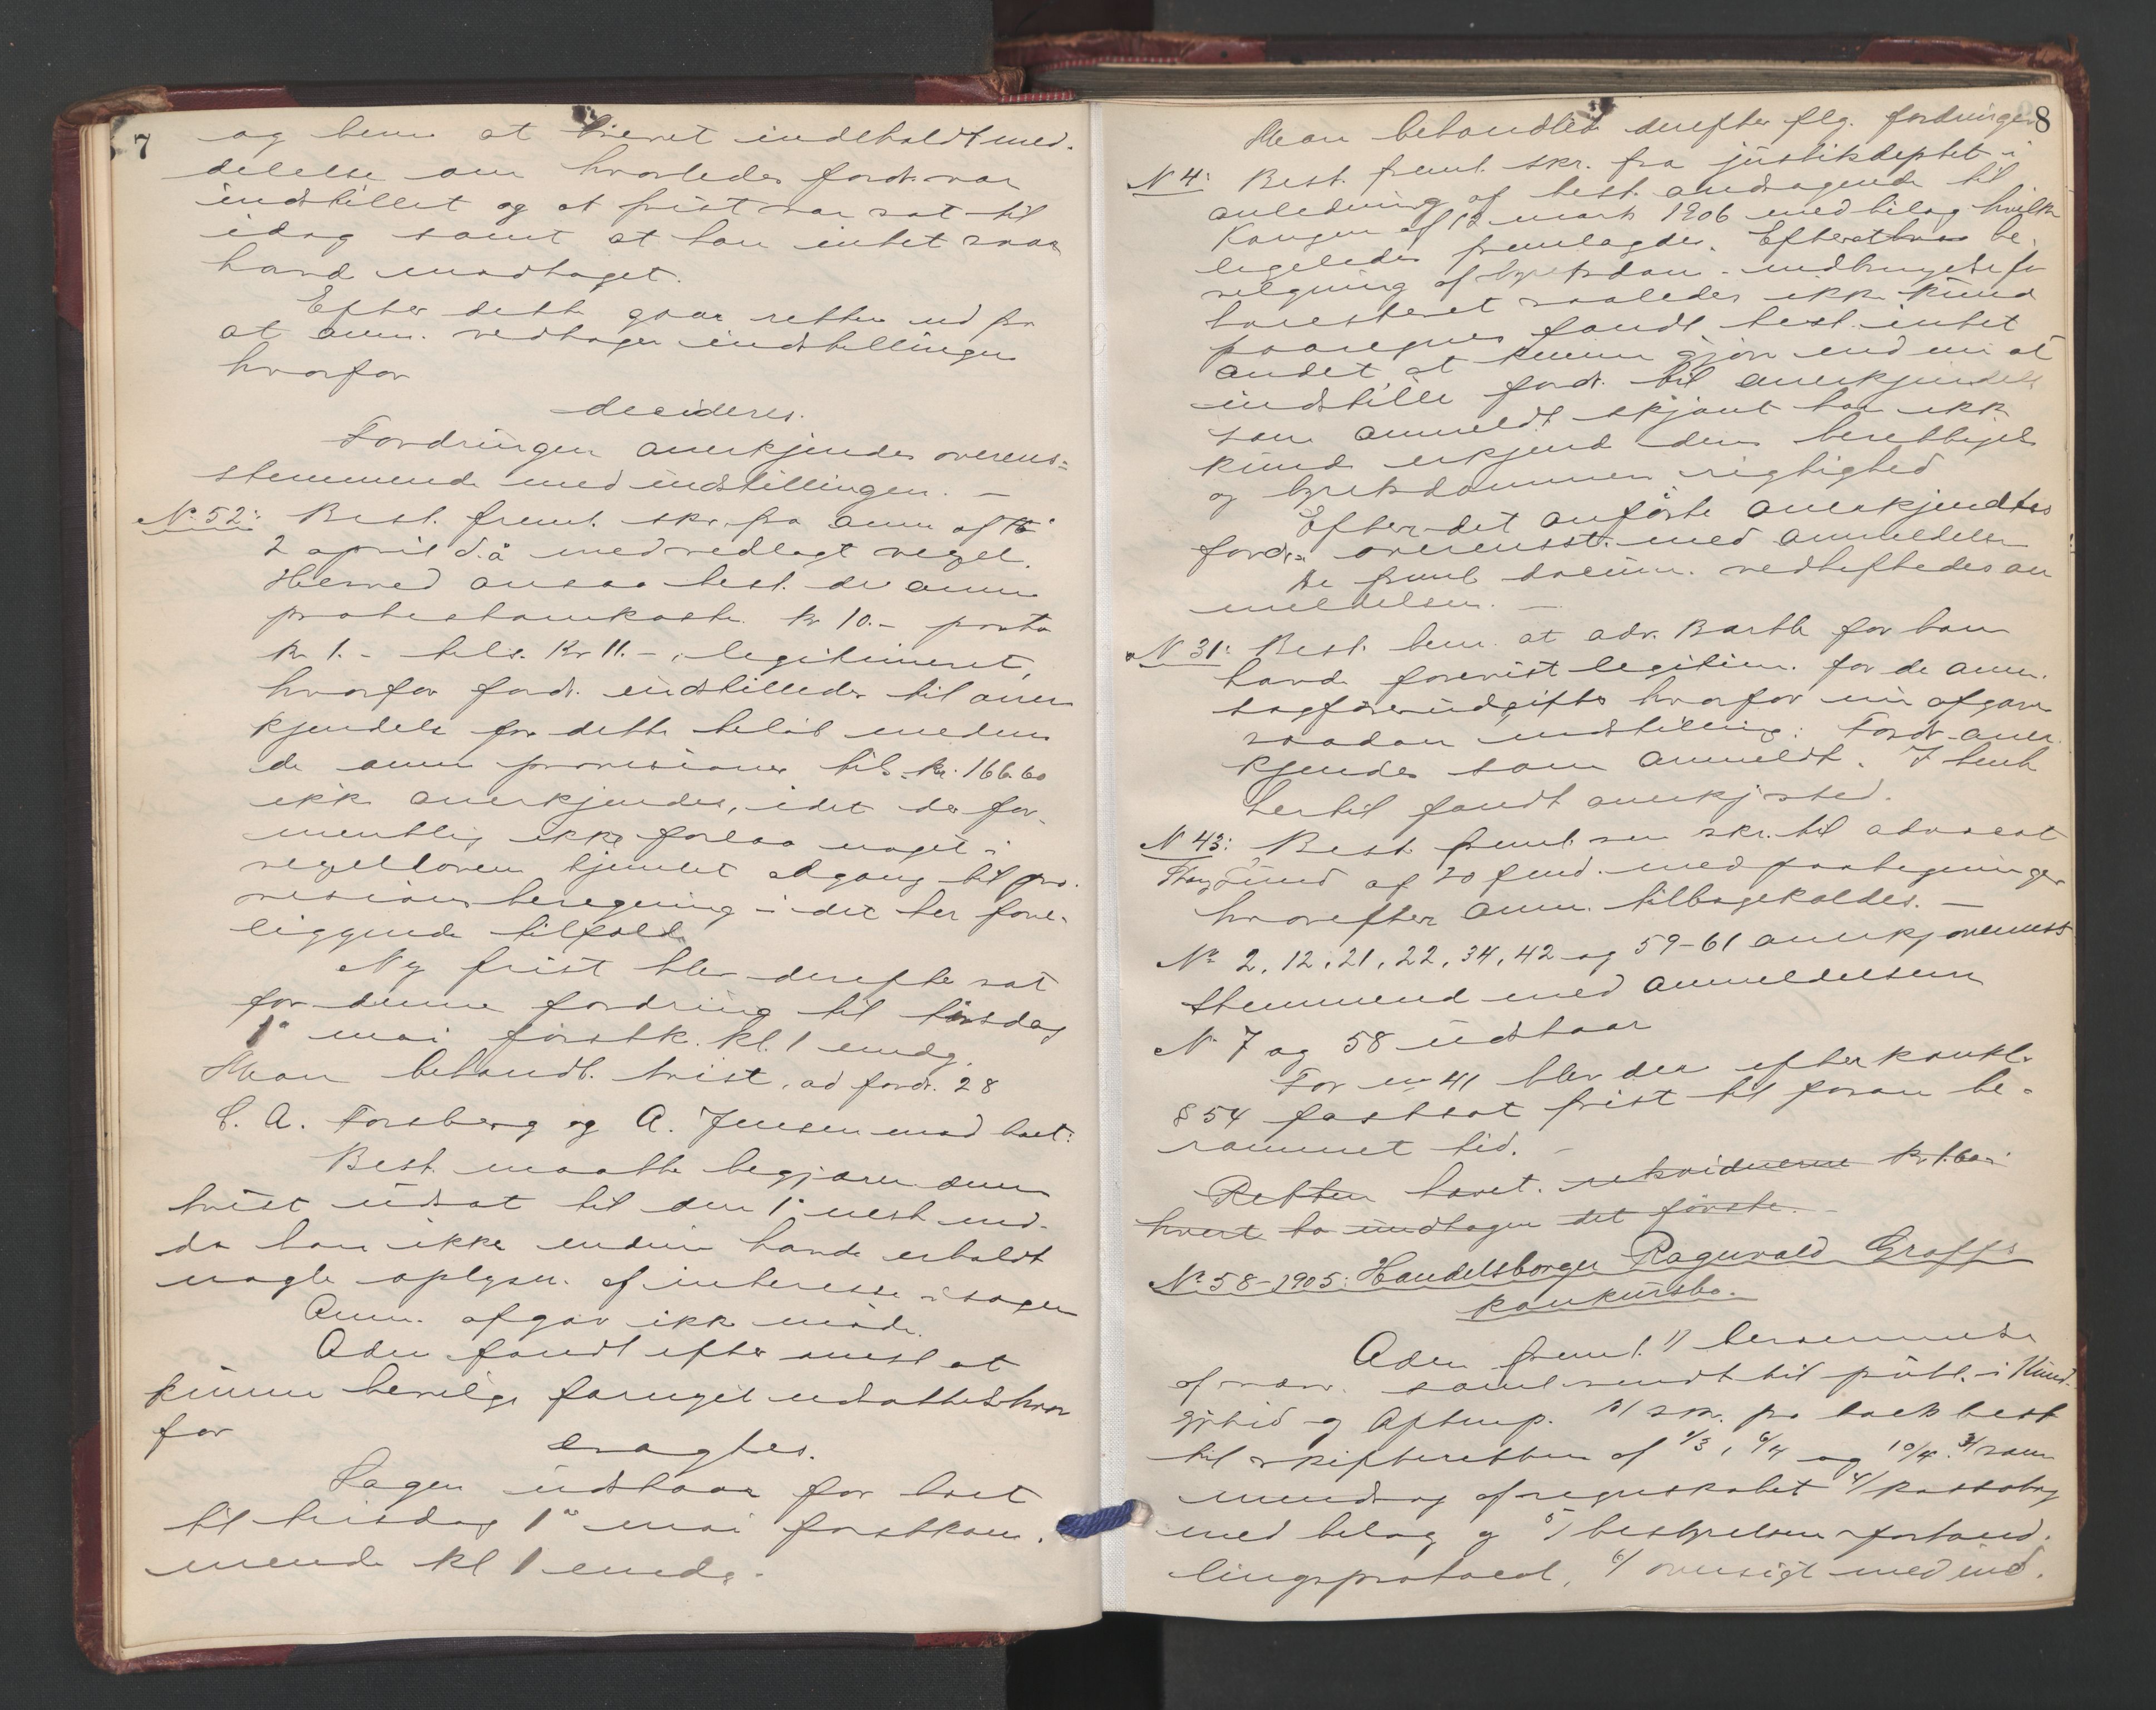 7
og bem. at brevet indeholdt med-
delelse om hvorledes fordr. var
indstillet og at frist var sat til
idag samt at han intet svar
havde modtaget.
Efter dette gaar retten ud fra
at anm. vedtager indstillingen
hvorfor
decideres.
Fordringen anerkjendes overens=
stemmende med indstillingen. —
No 52: Best. freml. skr. fra anm. af
2 april d.å med vedlagt vexel.
Herved ansaa best. de anm.
protestomkostn. kr 10.- porto
kr 1.- tils. Kr 11.-, legitimeret,
hvorfor fordr. indstilledes til aner
kjendelse for dette beløb medens
de anm. provisioner tils. kr. 166.60
ikke anerkjendes, idet der for-
mentlig ikke forelaa noget i
vexelloven hjemlet adgang til pro-
visionsberegning i det her fore-
liggende tilfælde
Ny frist blev derefter sat
for denne fordring til tirsdag
1ste mai førstk. kl. 1 emdg.
Man behandl. tvist. ad fordr. 28
C. A. Forsberg og A. Jensen mod boet:
Best. maatte begjære denne
tvist udsat til den 1ste næst md.
da han ikke endnu havde erholdt
nogle oplysn. af interesse i sagen
Anm. afgav ikke møde.
Adm. fandt efter omst. at
kunne bevilge forngel. udsættelse hvor
for
eragtes.
Sagen udstaar for boet
til tirsdag 1ste mai førstkom-
mende kl 1 emdg.
8
Man behandlede derefter flg. fordringer
N 4: Best. freml. skr. fra justitsdeptet i
anledning af best. andragende til
Kongen af 12 marts 1906 med bilag hvilke
ligeledes fremlagdes. Efterat be-
velgning af byretsdom. indbringelse for
høiesteret saaledes ikke kunde
paaregnes fandt best. intet
andet at kunne gjøre end nu at
indstille fordr. til anerkjendelse
som anmeldt skjønt han ikke
kunde erkjende dens berettigelse
og byretsdommens rigtighed
Efter det anførte anerkjendtes
fordr. overensst. med anmeldelsen
De freml. docum. vedheftedes an
meldelsen. —
N 31: Best. bem. at adv. Barth for ham
havde forevist legitim. for de anm.
sagførerudgifter hvorfor nu afgaves
saadan indstilling: Fordr. aner-
kjendes som anmeldt. I henh.
hertil fandt anerkj. sted.
N 43: Best. freml. sin skr. til advocat
af 20 med paategninger
hvorefter anm. tilbagekaldes. —
No 2, 12, 21, 22, 34, 42 og 59-61 anerkj. overenss
stemmende med anmeldelsen
No 7 og 58 udstaar
For no 41 blev der efter konkl.
§ 54 fastsat frist til foran be-
rammet tid. —
Retten hævet. rekvirererne kr 1.60
hvert to undtagen det første. —
No 58-1905: Handelsborger Ragnvald Graffs
konkursbo.
Adm. freml. 1/ berammelse
af samt sendt til publ. i Kund-
gjtid og Aftenp. 2/ skr. fra boets best.
til skifteretten af 1/3, 6/4 og 10/4. 3/ sam
mendrag af regnskabet 4/ kassabog
med bilag og 5/ bestyrelsens forhand-
lingsprotocol, 6/ oversigt med ind-